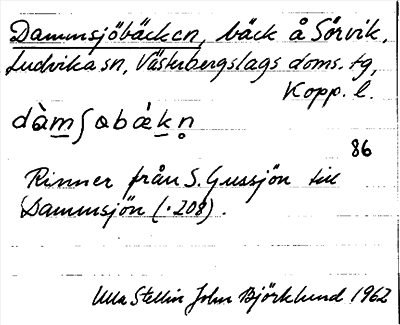 Dammsjöbäcken, bäck å Sörvik,
Ludvika sn, Västerbergslags doms. tg,
Kopp. l.
dàmʃabækn̥
86
Rinner från S. Gussjön till
Dammsjön (·208).
Ulla Stellin John Björklund 1962